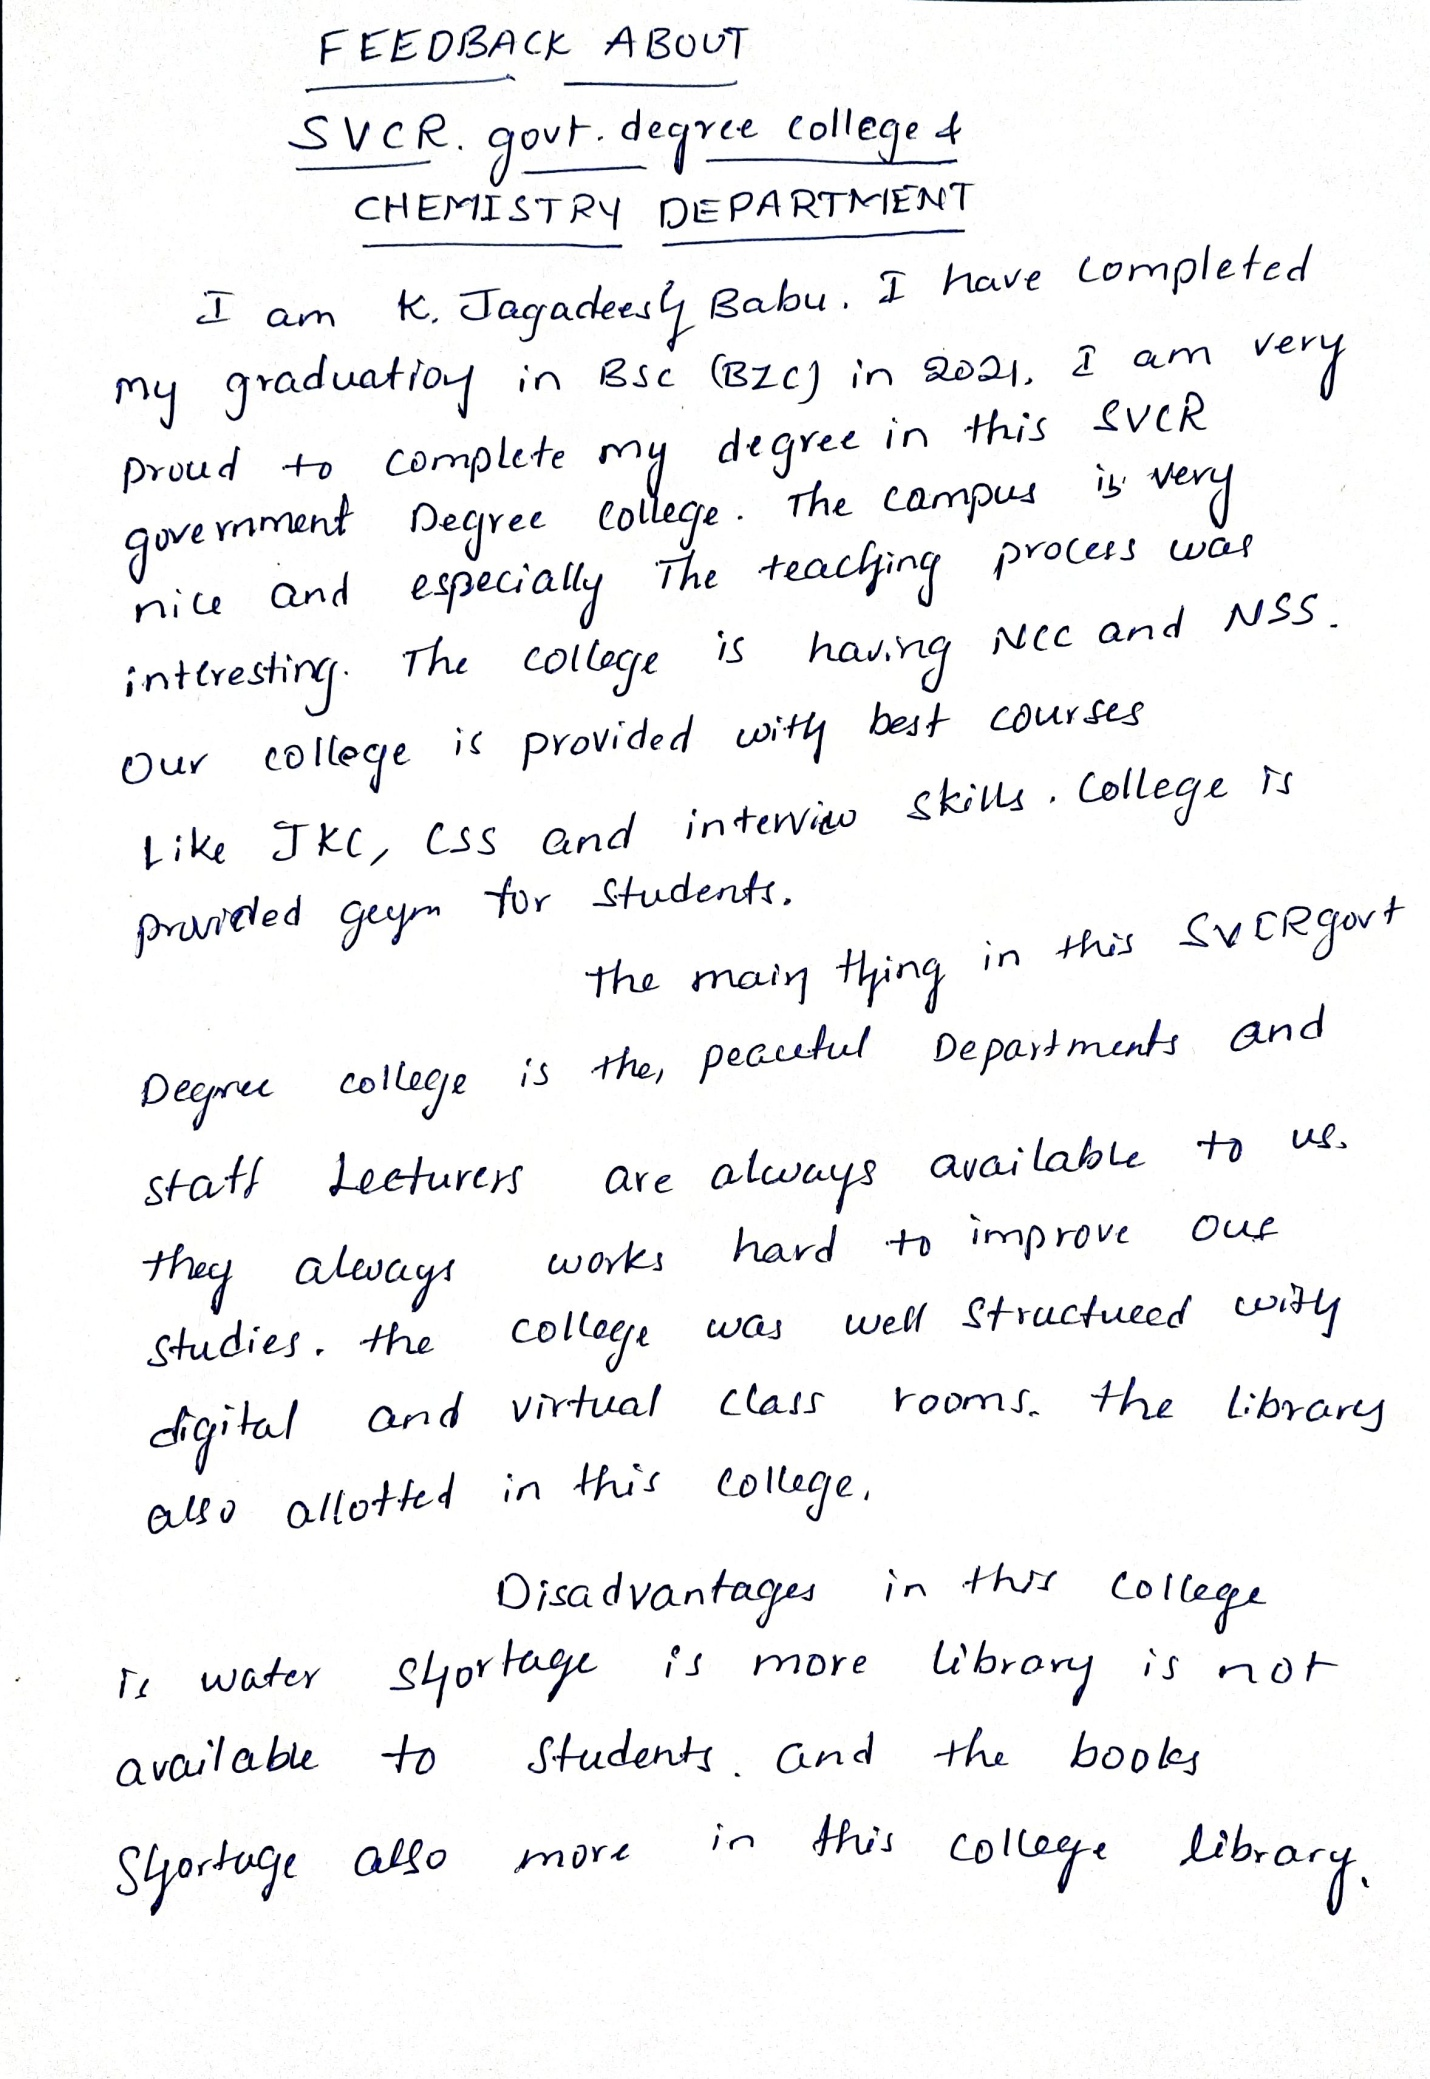 FEEDBACK ABOUT
SVCR. govt. degree college &
CHEMISTRY DEPARTMENT
I am K. Jagadeesh Babu. I have completed
my graduation in BSc (BZC) in 2021. I am very
proud to complete my degree in this SVCR
government Degree college. The campus is very
nice and especially The teaching process was
interesting. The college is having NCC and NSS.
Our college is provided with best courses
Like JKC, CSS and interviw skills. College is
provided geym for students.
the main thing in this SVCR govt
Degree college is the, peaceful Departments and
staff Lecturers are always available to us.
they always works hard to improve our
studies. the college was well structured with
digital and virtual class rooms. the library
also allotted in this college.
Disadvantages in this college
is water shortage is more library is not
available to students. and the books
shortage also more in this college library.